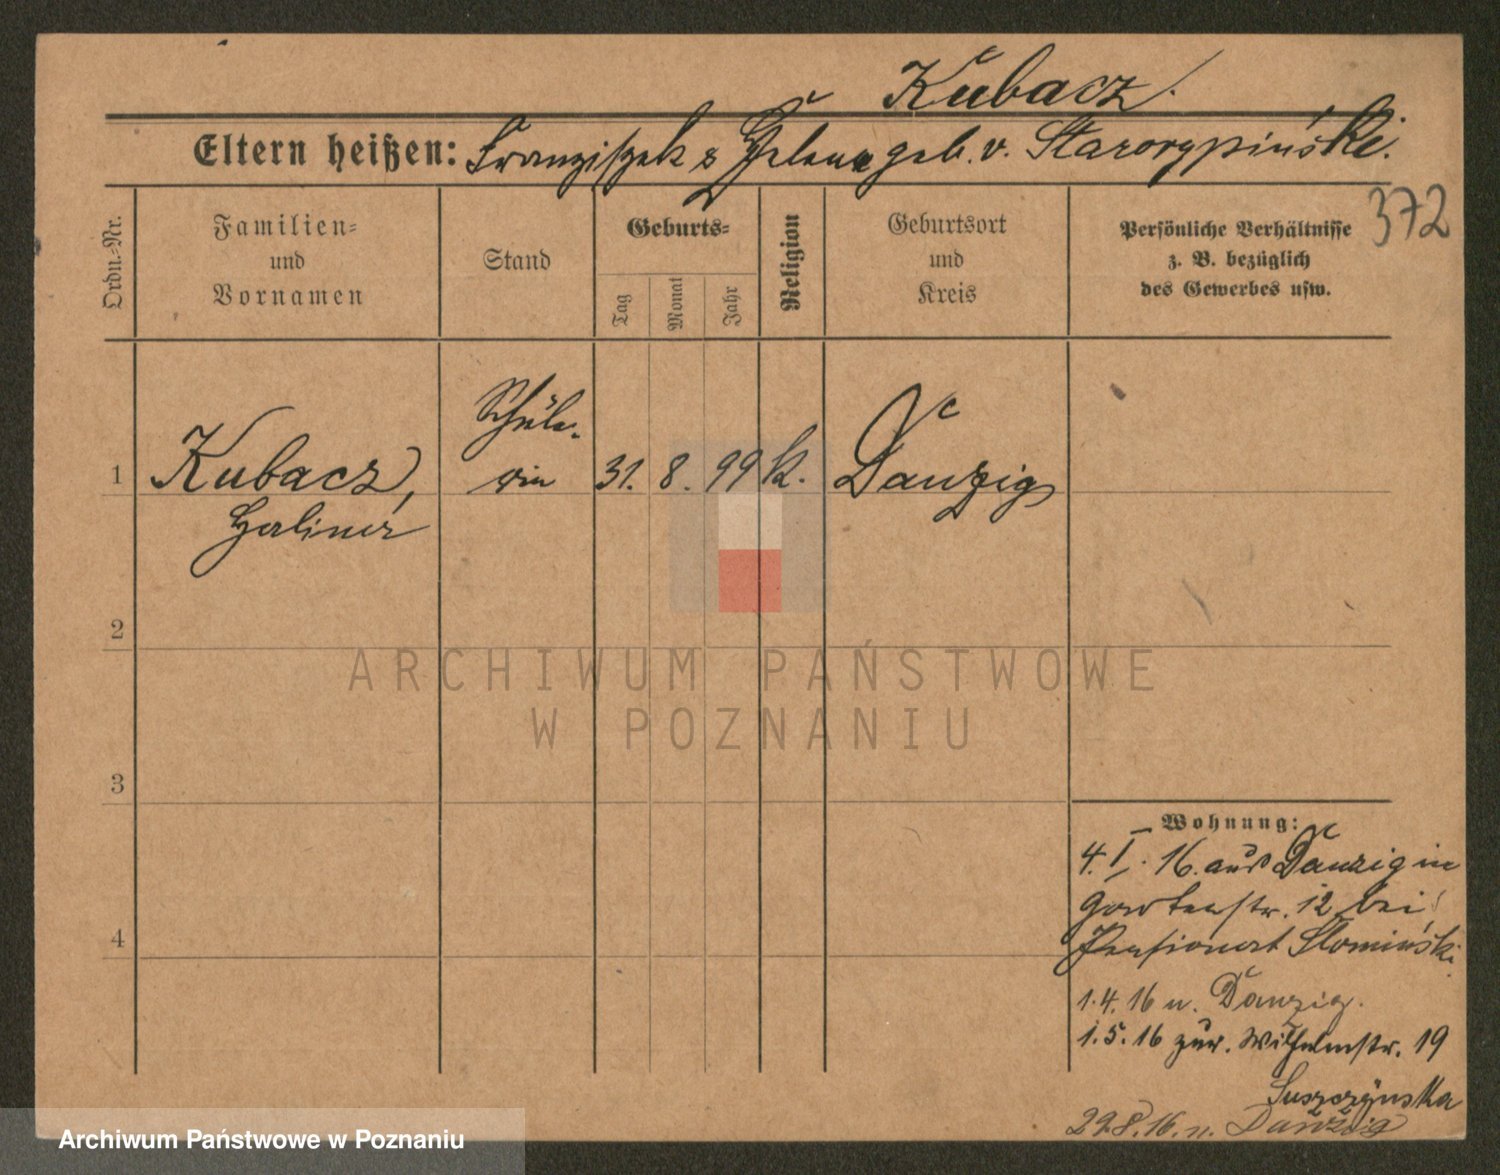 Kubacz.
Eltern heißen: Franziszek & Helene geb. v. Starorypiński.
372
Ordn.-Nr.
Familien-
und
Vornamen
Stand
Geburts-
Tag
Monat
Jahr
Religion
Geburtsort
und
Kreis
Persönliche Verhältnisse
z. B. bezüglich
des Gewerbes usw.
Schüle-
1 Kubacz, rin 31. 8. 99 k. Danzig
Halina
2
ARCHIWUM PAŃSTWOWE
W POZNANIU
3
Wohnung:
4. I. 16. aus Danzig in
Gartenstr. 12 bei
4
Pensionat Slomiński.
1.4.16 n. Danzig.
1.5.16 zur. Wilhelmstr. 19
Suszczynska
29.8.16. n. Danzig
Archiwum Państwowe w Poznaniu